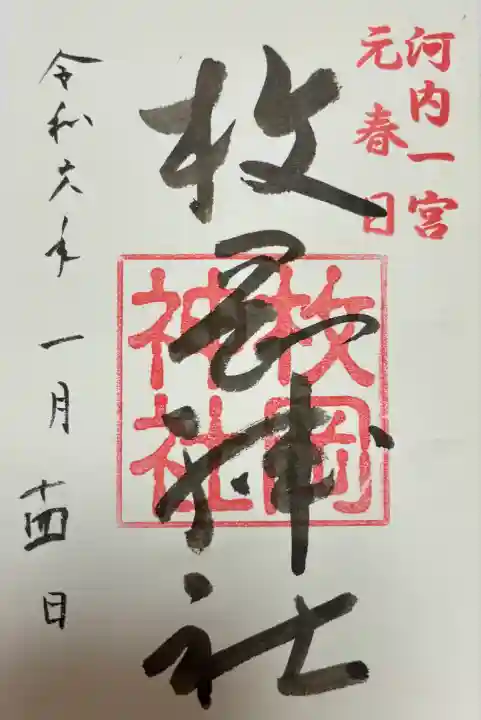 河内一宮
元春日
枚岡神社
枚岡
神社
令和六年一月十四日